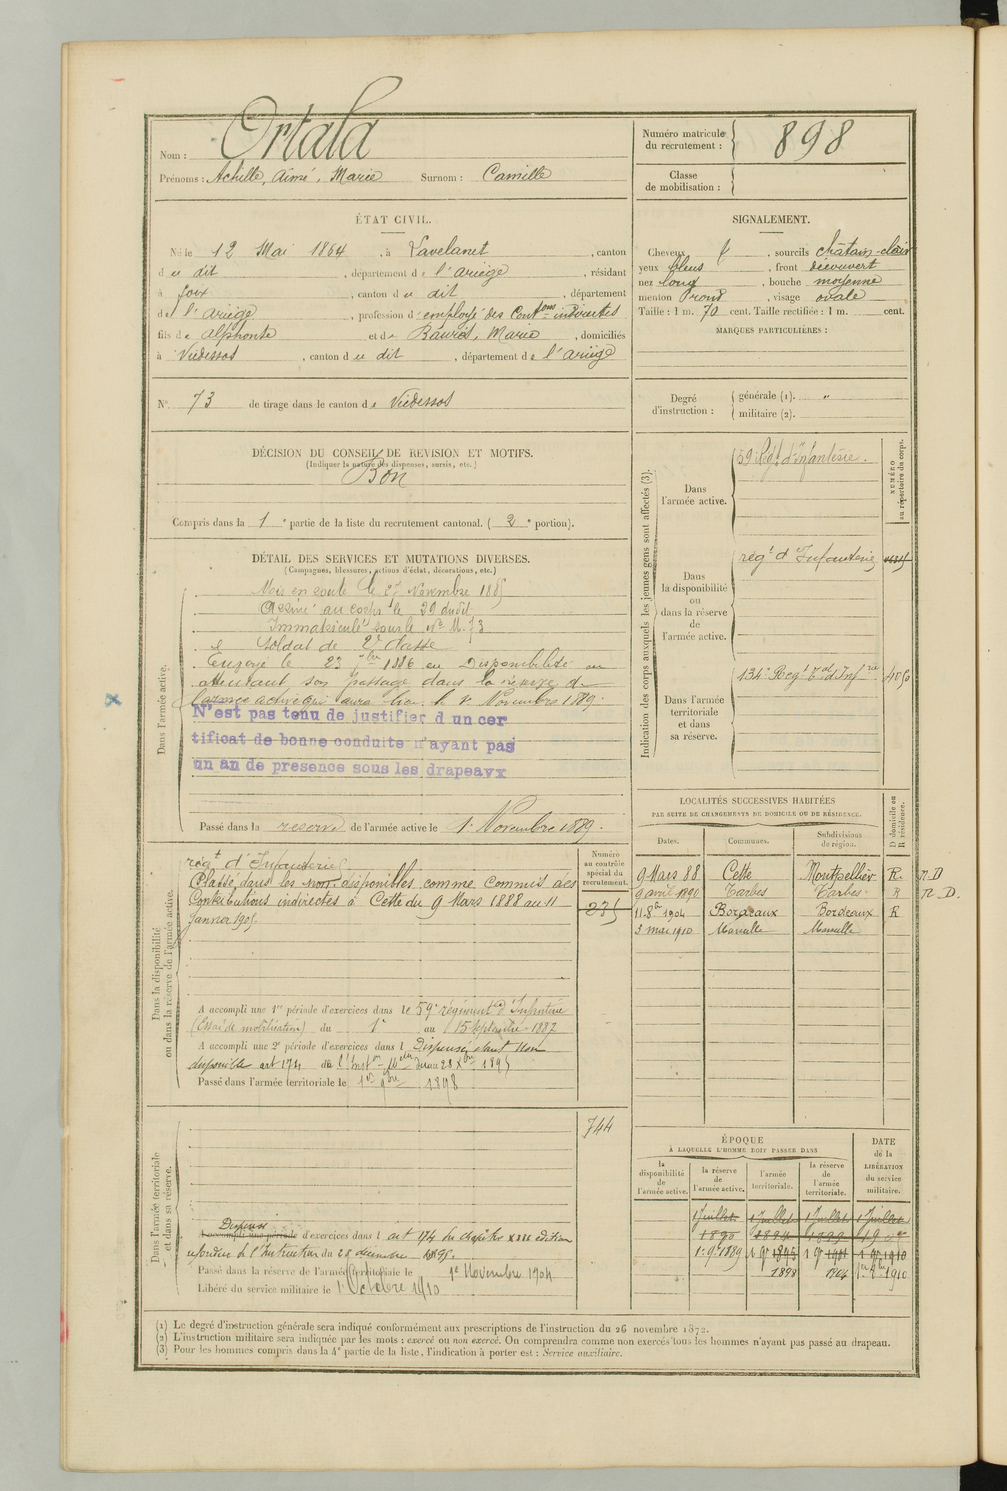 Nom : Ortala
Prénoms : Achille, Aimé, Marie Surnom : Camille
Numéro matricule du recrutement : 898
Classe de mobilisation :
ÉTAT CIVIL.
Né le 12 Mai 1864, à Lavelanet, canton
du dit, département de l'ariège, résidant
à foix, canton du dit, département
de l'ariège, profession d'employé des Contions indirectes
fils de alphonse et de Marie, domiciliés
à Vicdessos, canton du dit, département de l'ariège
N° 73 de tirage dans le canton de Vicdessos
SIGNALEMENT.
Cheveux, sourcils châtain-clair
yeux bleus, front découvert
nez long, bouche moyenne
menton rond, visage ovale
Taille : 1 m. 70 cent. Taille rectifiée : 1 m. cent.
MARQUES PARTICULIÈRES :
Degré d'instruction : générale (1). "
militaire (2).
DÉCISION DU CONSEIL DE REVISION ET MOTIFS.
(Indiquer la nature des dispenses, sursis, etc.)
Bon
Compris dans la 1e partie de la liste du recrutement cantonal. (2e portion).
DÉTAIL DES SERVICES ET MUTATIONS DIVERSES.
(Campagnes, blessures, actions d'éclat, décorations, etc.)
Dans l'armée active.
Mis en route le 27 Novembre 1885
Arrivé au corps le 29 dudit
Immatriculé sous le No
Soldat de 2e classe
Envoyé le 23 7bre 1886 en Disponibilité en
attendant son passage dans la réserve de
l'armée active qui aura lieu le 1. Novembre 1889.
N'est pas tenu de justifier d un cer
tificat de bonne conduite n'ayant pas
un an de presence sous les drapeavx
Passé dans la reserve de l'armée active le 1. Novembre 1889.
Indication des corps auxquels les jeunes gens sont affectés (3).
NUMÉRO au répertoire du corps.
Dans l'armée active.
59 Regt d'Infanterie.
Dans la disponibilité ou dans la réserve de l'armée active.
regt d'Infanterie
Dans l'armée territoriale et dans sa réserve.
134e Regt Tal d'Infrie
LOCALITÉS SUCCESSIVES HABITÉES
PAR SUITE DE CHANGEMENTS DE DOMICILE OU DE RÉSIDENCE.
Dates. Communes. Subdivisions de région. D domicile ou R résidence.
9 Mars 88 Cette Montpellier R. N.D
9 avril 1891 Tarbes Tarbes R N.D.
11-8bre 1904 Bordeaux Bordeaux R
3 mai 1910 Marseille Marseille
Dans la disponibilité ou dans la réserve de l'armée active.
Numéro au contrôle spécial du recrutement.
regt d'Infanterie
Classé dans les non-disponibles comme Commis des
Contributions indirectes à Cette du 9 Mars 1888 au 11
Janvier 1905.
235
A accompli une 1re période d'exercices dans le 59e régiment d'Infanterie
(Essai de mobilisation) du 1er au 15 Septembre 1887
A accompli une 2e période d'exercices dans l Dispensé étant non
disponible art 174 de l'Inston du 28 Xbre 1895
Passé dans l'armée territoriale le 1er 9bre 1898
Dans l'armée territoriale et dans sa réserve.
744
Dispensé
A accompli une période d'exercices dans l art 174 du chapitre XXII édition
refondue de l'Instruction du 28 décembre 1895.
Passé dans la réserve de l'armée territoriale le 1e Novembre 1904
Libéré du service militaire le 1. Octobre 1910
ÉPOQUE
À LAQUELLE L'HOMME DOIT PASSER DANS
la disponibilité de l'armée active. la réserve de l'armée active. l'armée territoriale. la réserve de l'armée territoriale.
DATE de la LIBÉRATION du service militaire.
1 Juillet 1 Juillet 1 Juillet 1 Juillet
1890
1. 9e 1889
1898 1904 1910
(1) Le degré d'instruction générale sera indiqué conformément aux prescriptions de l'instruction du 26 novembre 1872.
(2) L'instruction militaire sera indiquée par les mots : exercé ou non exercé. On comprendra comme non exercés tous les hommes n'ayant pas passé au drapeau.
(3) Pour les hommes compris dans la 4e partie de la liste, l'indication à porter est : Service auxiliaire.